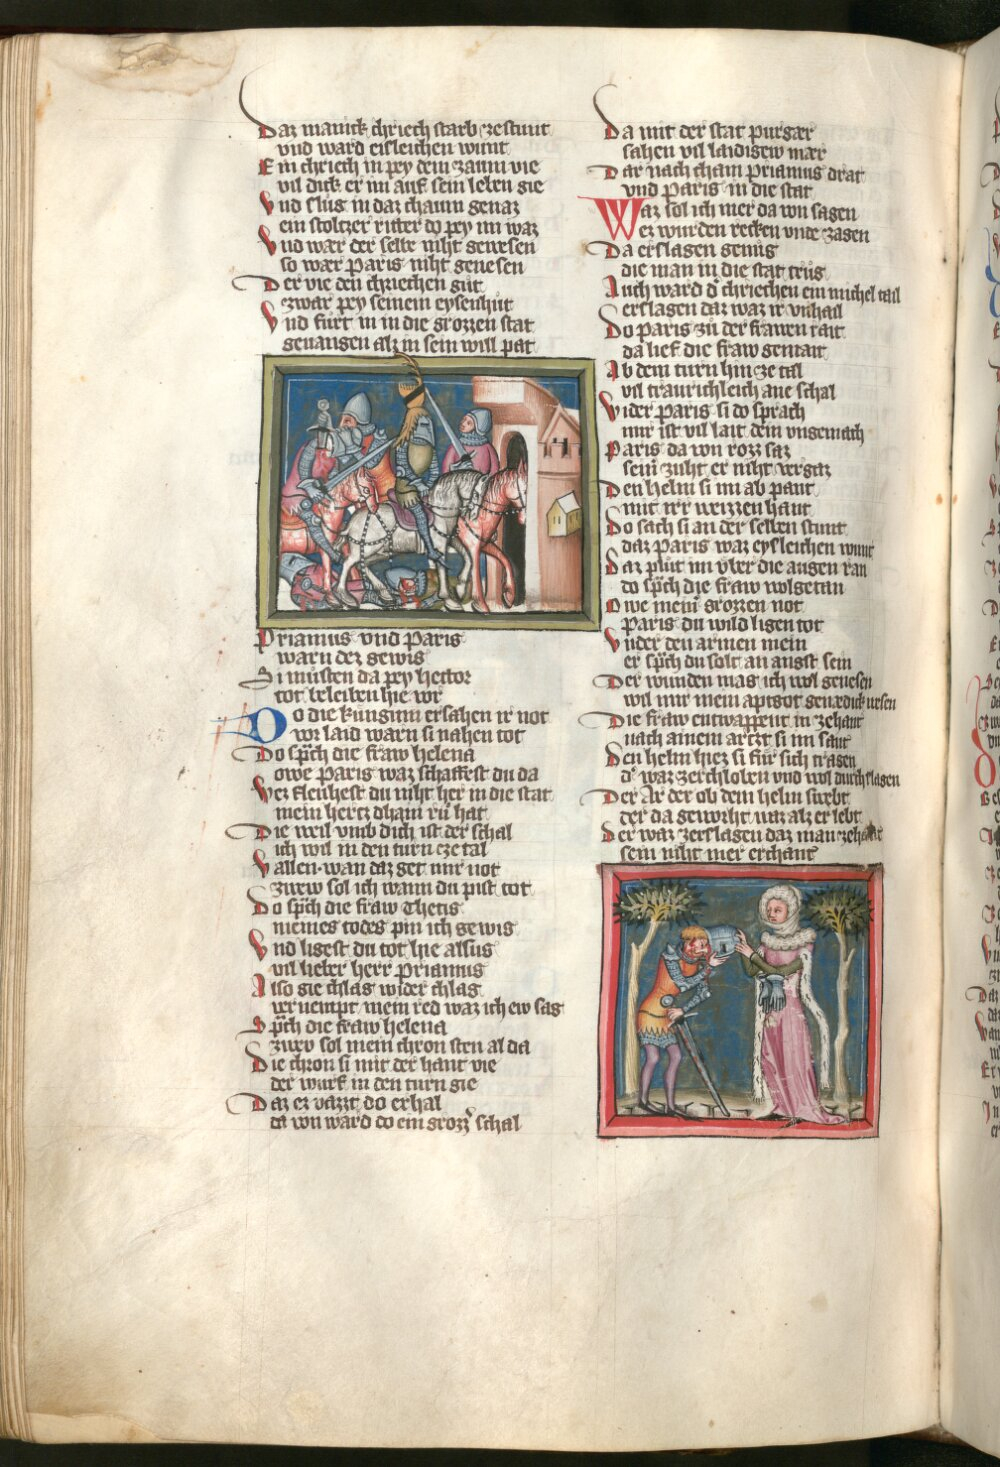 Daz manich chriech starb ze stunt
vnd ward eisleichen wunt
Ein chriech in pey dem zaum vie
vil dick er im auf sein leben gie
Vnd slug in daz chaum genaz
ein stoltzer ritter do pey im waz
Vnd wær der selbe niht gewesen
so wær Paris niht genesen
Der vie den chriechen gůt
zwar pey seinem eysenhůt
Vnd fůrt in in die grozzen stat
geuangen alz in sein will pat
Priamus vnd Paris
warn dez gewis
Si můsten da pey hector
tot beleiben hie vor
Do die kůnginn ersahen ir not
vor laid warn si nahen tot
Do sp̄ch die fraw helena
owe Paris waz schaffest du da
Wez fleuhest du niht her in die stat
mein hertz dhain rů hat
Die weil vmb dich ist der schal
ich wil in den turn cze tal
Vallen wan daz get mir not
zwew sol ich wann du pist tot
Do sp̄ch die fraw Thetis
meines todes pin ich gewis
Vnd ligest du tot hie alsus
vil lieber herr Priamus
Also gie chlag wider chlag
vernempt mein red waz ich ew sag
Sp̄ch die fraw helena
zwev sol mein chron sten al da
Die chron si mit der hant vie
der wurf in den turn gie
Daz ez vazzt do erhal
da von ward do ein grozz' schal
Da mit der stat purgær
sahen vil laidigew mær
Dar nach cham Priamus drat
vnd Paris in die stat
Waz sol ich mer da von sagen
ez wurden recken vnde zagen
Da erslagen genůg
die man in die stat trůg
Auch ward d' chriechen ein michel tail
erslagen daz waz ir vnhail
Do Paris zů der frawen rait
da lief die fraw gemait
Ab dem turn hin ze tal
vil traurichleich ane schal
Wider Paris si do sprach
mir ist vil lait dein vngemach
Paris da von rozz saz
sein' zuht er niht vergaz
Den helm si im ab pant
mit irr weizzen hant
Do sach si an der selben stunt
daz Paris waz eysleichen wunt
Daz plůt im vber die augen ran
do sp̄ch die fraw wolgetan
Owe mein' grozzen not
Paris du wild ligen tot
Vnder den armen mein
er sp̄ch du solt an angst sein
Der wunden mag ich wol genesen
wil mir mein aptgot genædich wesen
Die fraw entwappent in zehant
nach ainem artzt si im sant
Den helm hiez si für sich tragen
d' waz zerchloben vnd wol durch slagen
Der Ar der ob dem helm swebt
der da geworht waz alz er lebt
Der waz zerslagen daz man zehant
sein niht mer erchant